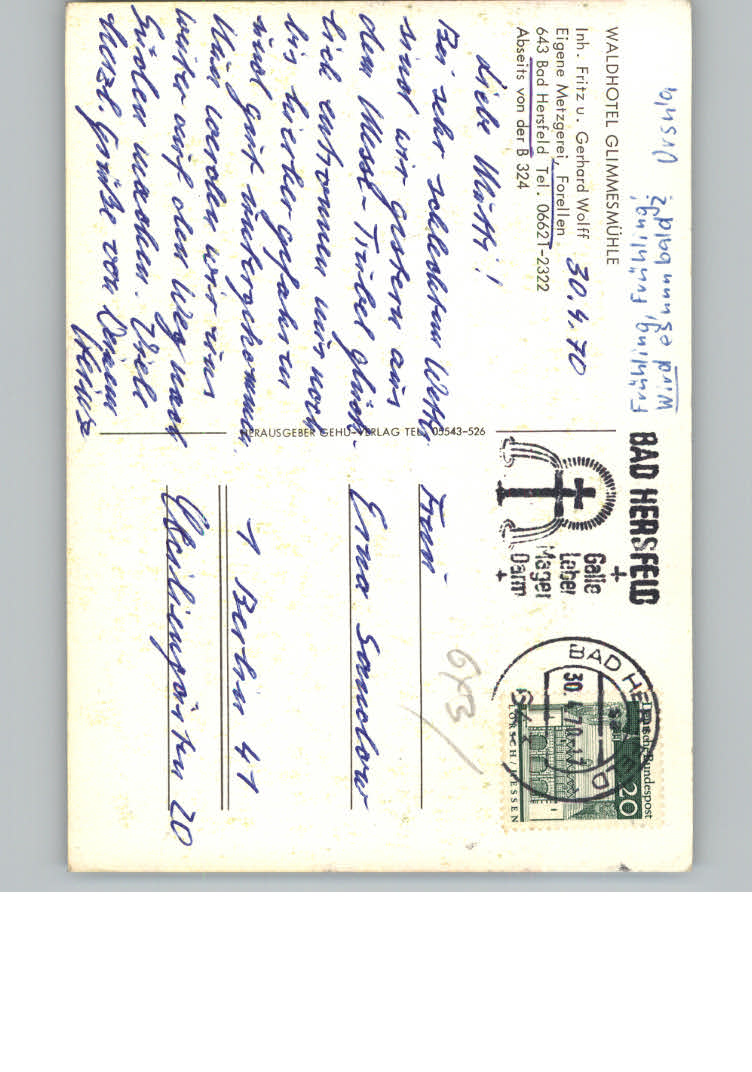 WALDHOTEL GLIMMESMÜHLE
Inh. Fritz u. Gerhard Wolff
Eigene Metzgerei, Forellen
643 Bad Hersfeld Tel. 06621-2322
Abseits von der B 324
30.4.70
Liebe Mutti!
Bei sehr schlechtem Wetter
sind wir gestern aus
dem Messe-Trubel glück-
lich entronnen und noch
bis hierher gefahren
und gut untergekommen.
Nun werden wir uns
weiter auf den Weg nach
Süden machen. Viele
herzl. Grüße von Deinem
Heinz
Frühling, Frühling,
wird es nun bald?
HERAUSGEBER GEHU-VERLAG TEL. 05543-526
BAD HERSFELD
Galle
Leber
Magen
Darm
BAD HERSFELD
30.4.70
Deutsche Bundespost
20
LORSCH/HESSEN
Frau
Erna Sandow
1 Berlin 41
Cäciliengärten 20
6x3/